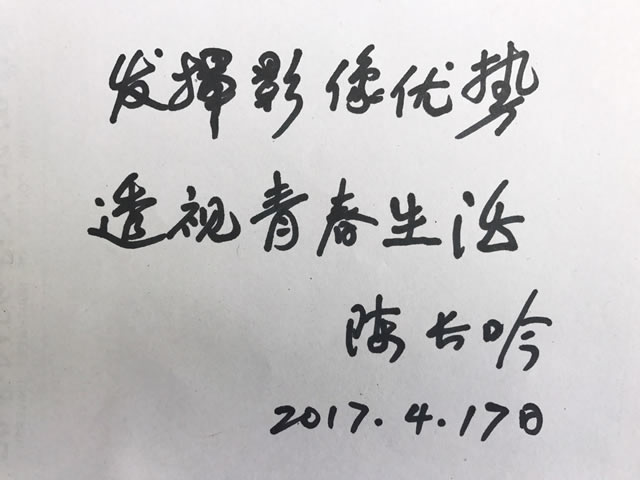 发挥影像优势
透视青春生活
陈长吟
2017.4.17日